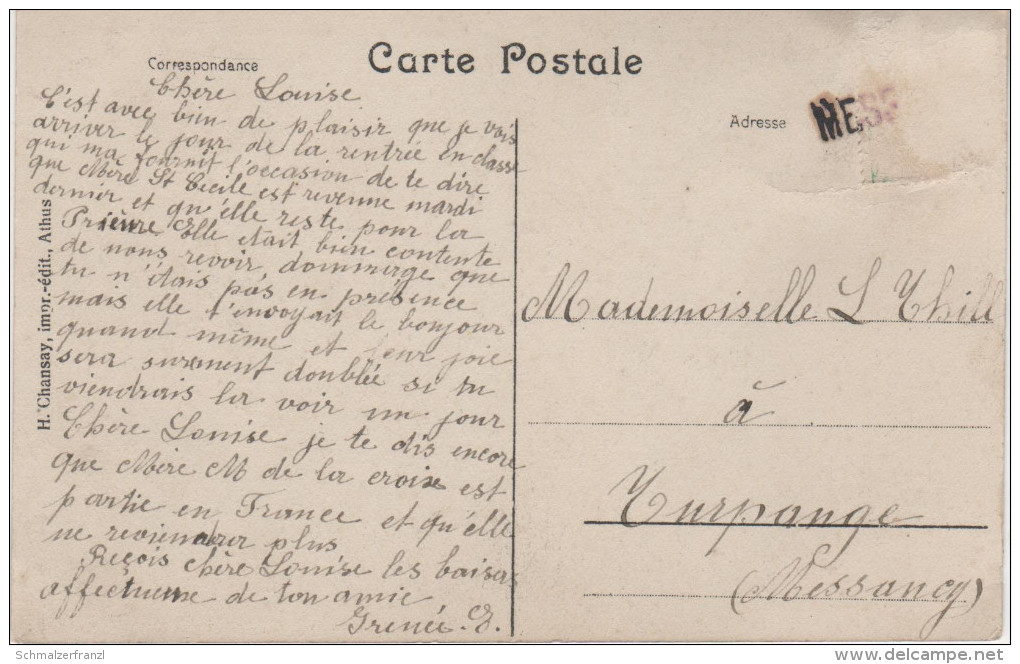 Carte Postale
Correspondance
Adresse
MESS
Chère Louise
C'est avec bien de plaisir que je vois
arriver le jour de la rentrée en classe
qui me fournit l'occasion de te dire
que Mère St Cecile est revenue mardi
dernier et qu'elle reste pour la
Prieure Elle était bien contente
de nous revoir, dommage que
tu n'étais pas en présence
mais elle t'envoyait le bonjour
quand même et leur joie
sera surement doublée si tu
viendrais la voir un jour
Chère Louise je te dis encore
que Mère M de la croix est
partie en France et qu'elle
ne reviendra plus
Reçois chère Louise les baisers
affectueuse de ton amie
Irenée. E.
Mademoiselle L Thill
à
Turpange
(Messancy)
H. Chansay, impr.-édit., Athus
Schmalzerfranzl
www.delcampe.net